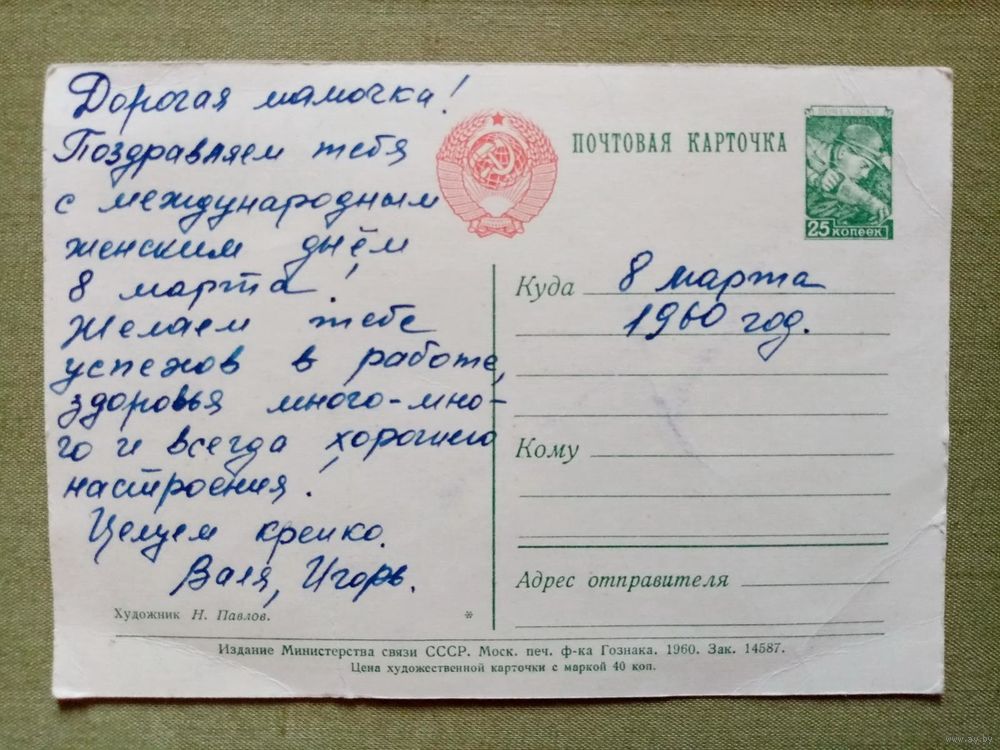 Дорогая мамочка!
Поздравляем тебя
с международным
женским днём
8 марта!
Желаем тебе
успехов в работе,
здоровья много-мно-
го и всегда хорошего
настроения!
Целуем крепко.
Валя, Игорь.
Художник Н. Павлов.
*
ПОЧТОВАЯ КАРТОЧКА
25 копеек
Куда 8 марта
1960 год.
Кому
Адрес отправителя
Издание Министерства связи СССР. Моск. печ. ф-ка Гознака. 1960. Зак. 14587.
Цена художественной карточки с маркой 40 коп.
www.ay.by